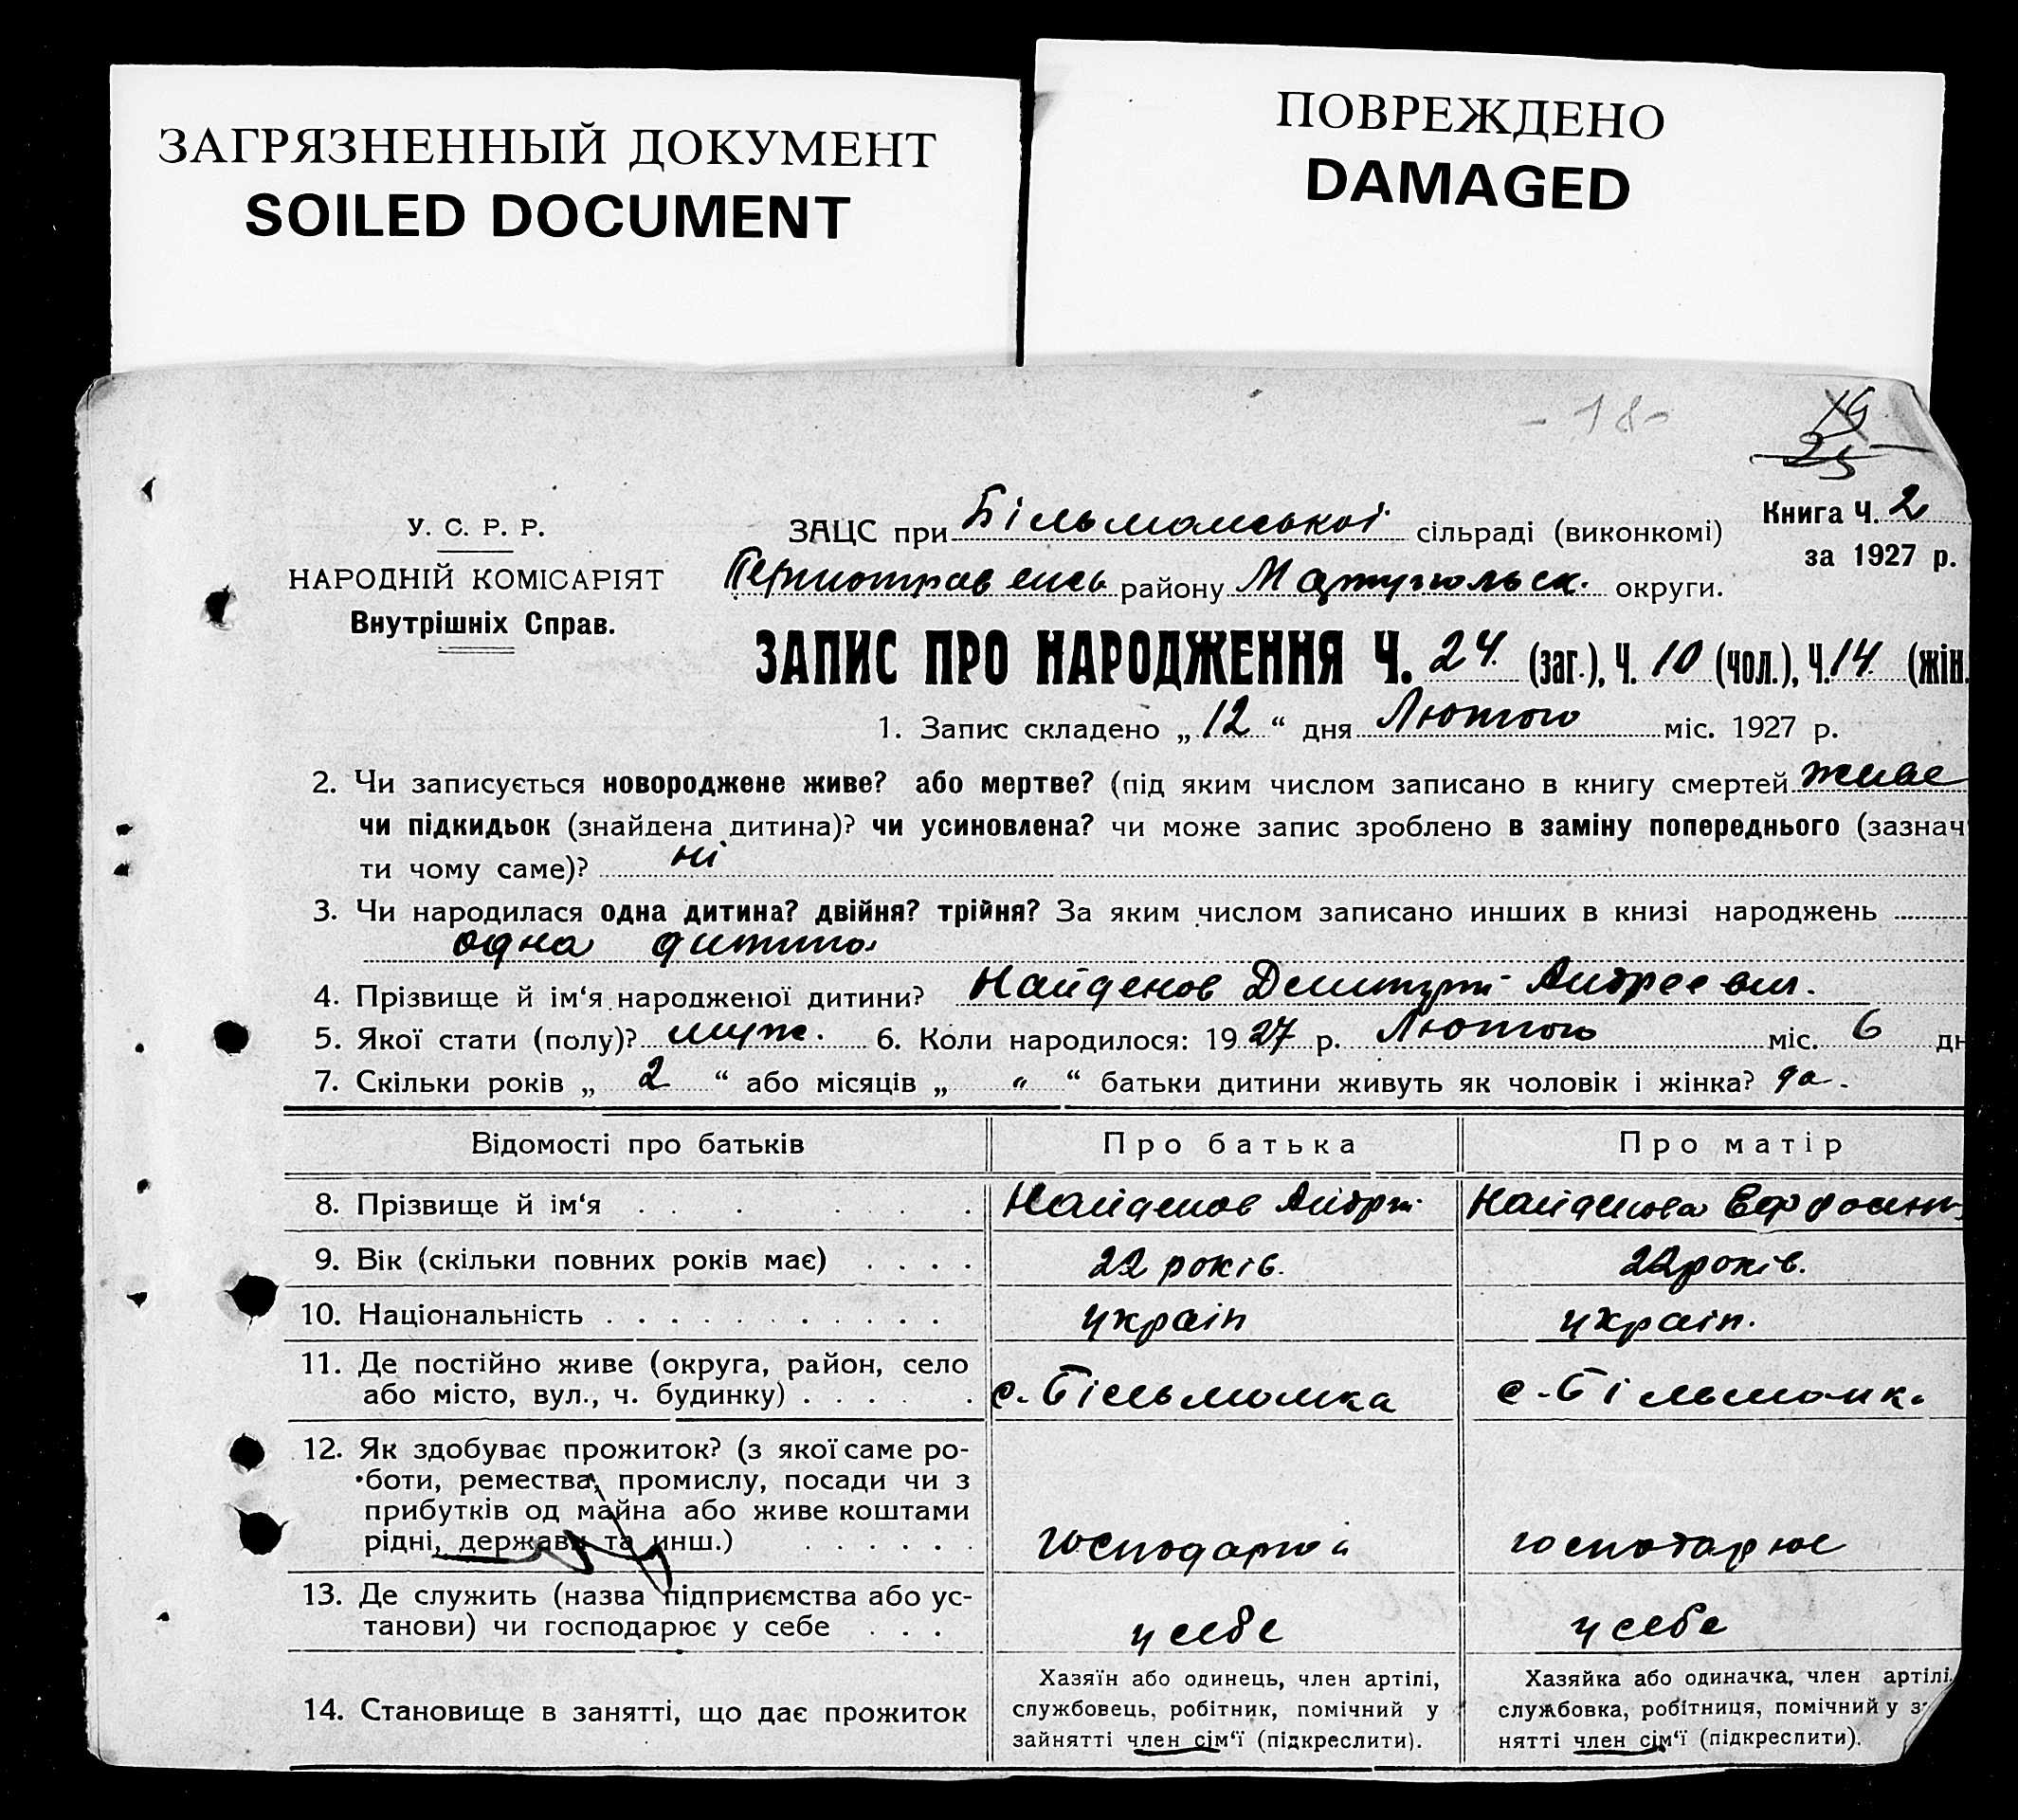 ЗАГРЯЗНЕННЫЙ ДОКУМЕНТ
SOILED DOCUMENT
ПОВРЕЖДЕНО
DAMAGED
- 18 -
19
25
У. С. Р. Р.
НАРОДНІЙ КОМІСАРІЯТ
Внутрішніх Справ.
Книга Ч. 2
за 1927 р.
ЗАЦС при Більманської сільраді (виконкомі)
району Маріупольск. округи.
ЗАПИС ПРО НАРОДЖЕННЯ Ч. 24. (заг.), Ч. 10 (чол.), Ч. 14. (жін.
1. Запис складено „ 12 “ дня Лютого міс. 1927 р.
2. Чи записується новороджене живе? або мертве? (під яким числом записано в книгу смертей живе
чи підкидьок (знайдена дитина)? чи усиновлена? чи може запис зроблено в заміну попереднього (зазнач
ти чому саме)? ні
3. Чи народилася одна дитина? двійня? трійня? За яким числом записано инших в книзі народжень
одна дитина
4. Прізвище й ім‘я народженої дитини? Найденов Дмитрій Андреевич.
5. Якої стати (полу)? муж. 6. Коли народилося: 1927 р. Лютого міс. 6 дн
7. Скільки років „ 2 “ або місяців „ " “ батьки дитини живуть як чоловік і жінка? да.
Відомості про батьків Про батька Про матір
8. Прізвище й ім‘я . . . . . . . Найденов Андрій Найденова Ефросин
9. Вік (скільки повних років має) . . . . 22 років. 22 років.
10. Національність . . . . . . . . . . україн україн.
11. Де постійно живе (округа, район, село
або місто, вул., ч. будинку) . . . . . с. Більманка с. Більманк.
12. Як здобуває прожиток? (з якої саме ро-
боти, ремества, промислу, посади чи з
прибутків од майна або живе коштами
рідні, держави та инш.) . . . . . . господарює
13. Де служить (назва підприємства або ус-
танови) чи господарює у себе . . . у себе у себе
14. Становище в занятті, що дає прожиток
Хазяїн або одинець, член артілі,
службовець, робітник, помічний у
зайнятті член сім‘ї (підкреслити).
Хазяйка або одиначка, член артілі,
службовка, робітниця, помічний у з
нятті член сім‘ї (підкреслити).